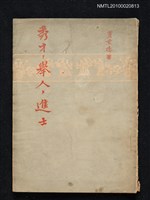 NMTL20100020813
秀才、舉人、進士